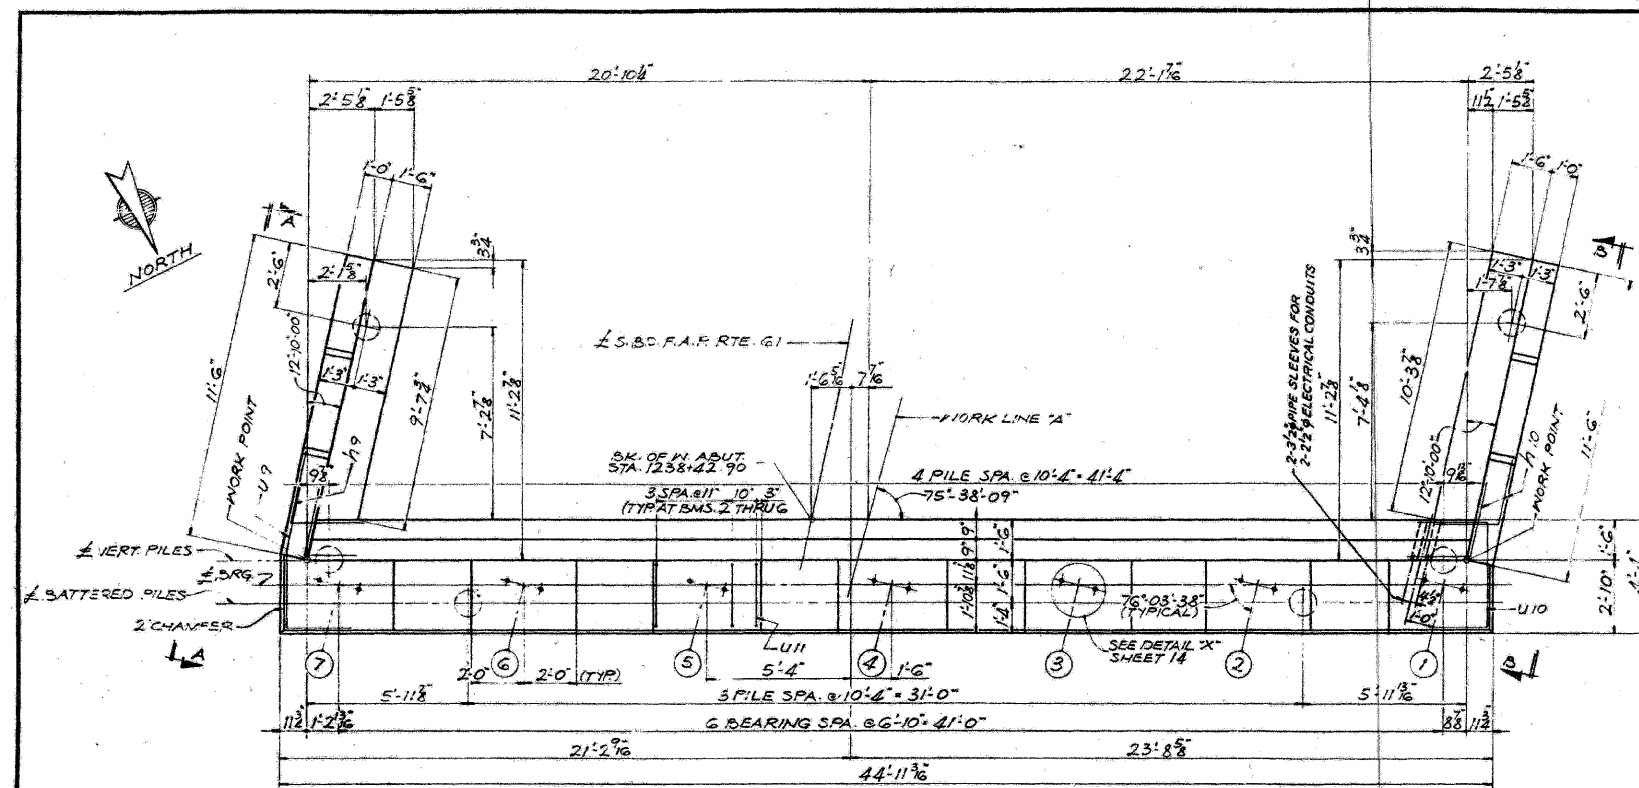 20'-10¼"
22'-1 7/16"
2'-5⅛"
2'-5⅛"
1'-5⅝"
11½"
1'-5⅝"
1'-0"
1'-6"
1'-6"
1'-0"
A
B
NORTH
2'-6"
2'-1⅝"
3¾"
3¾"
1'-3"
1'-3"
1'-7⅞"
2'-6"
12-10'-00"
11'-6"
1'-3"
1'-3"
9'-7¾"
7'-2⅞"
11'-2⅞"
℄ S.B.D. F.A.P. RTE. 61
1'-6 5/16"
7 7/16"
2-3½"⌀ PIPE SLEEVES FOR
2-2½"⌀ ELECTRICAL CONDUITS
11'-2⅞"
7'-4⅛"
10'-3⅞"
WORK LINE "A"
WORK POINT
U9
h9
9⅞"
BK. OF W. ABUT.
STA. 1238+42.90
4 PILE SPA. @ 10'-4" = 41'-4"
75°-38'-09"
3 SPA. @ 11"
10"
3"
(TYP. AT BMS. 2 THRU 6
12-10'-00"
h10
WORK POINT
11'-6"
℄ VERT. PILES
℄ BRG.
℄ BATTERED PILES
2" CHAMFER
9"
9"
1'-6"
1'-6"
1'-4"
76°-03'-38"
(TYPICAL)
1'-0"
1'-6"
2'-10"
U10
SEE DETAIL "X"
SHEET 14
U11
A
B
7
6
5
4
3
2
1
2'-0"
2'-0" (TYP)
5'-4"
1'-6"
5'-11⅞"
3 PILE SPA. @ 10'-4" = 31'-0"
5'-11 13/16"
11¾"
1'-2 13/16"
6 BEARING SPA. @ 6'-10" = 41'-0"
8⅞"
11¾"
21'-2 9/16"
23'-8⅝"
44'-11 3/16"